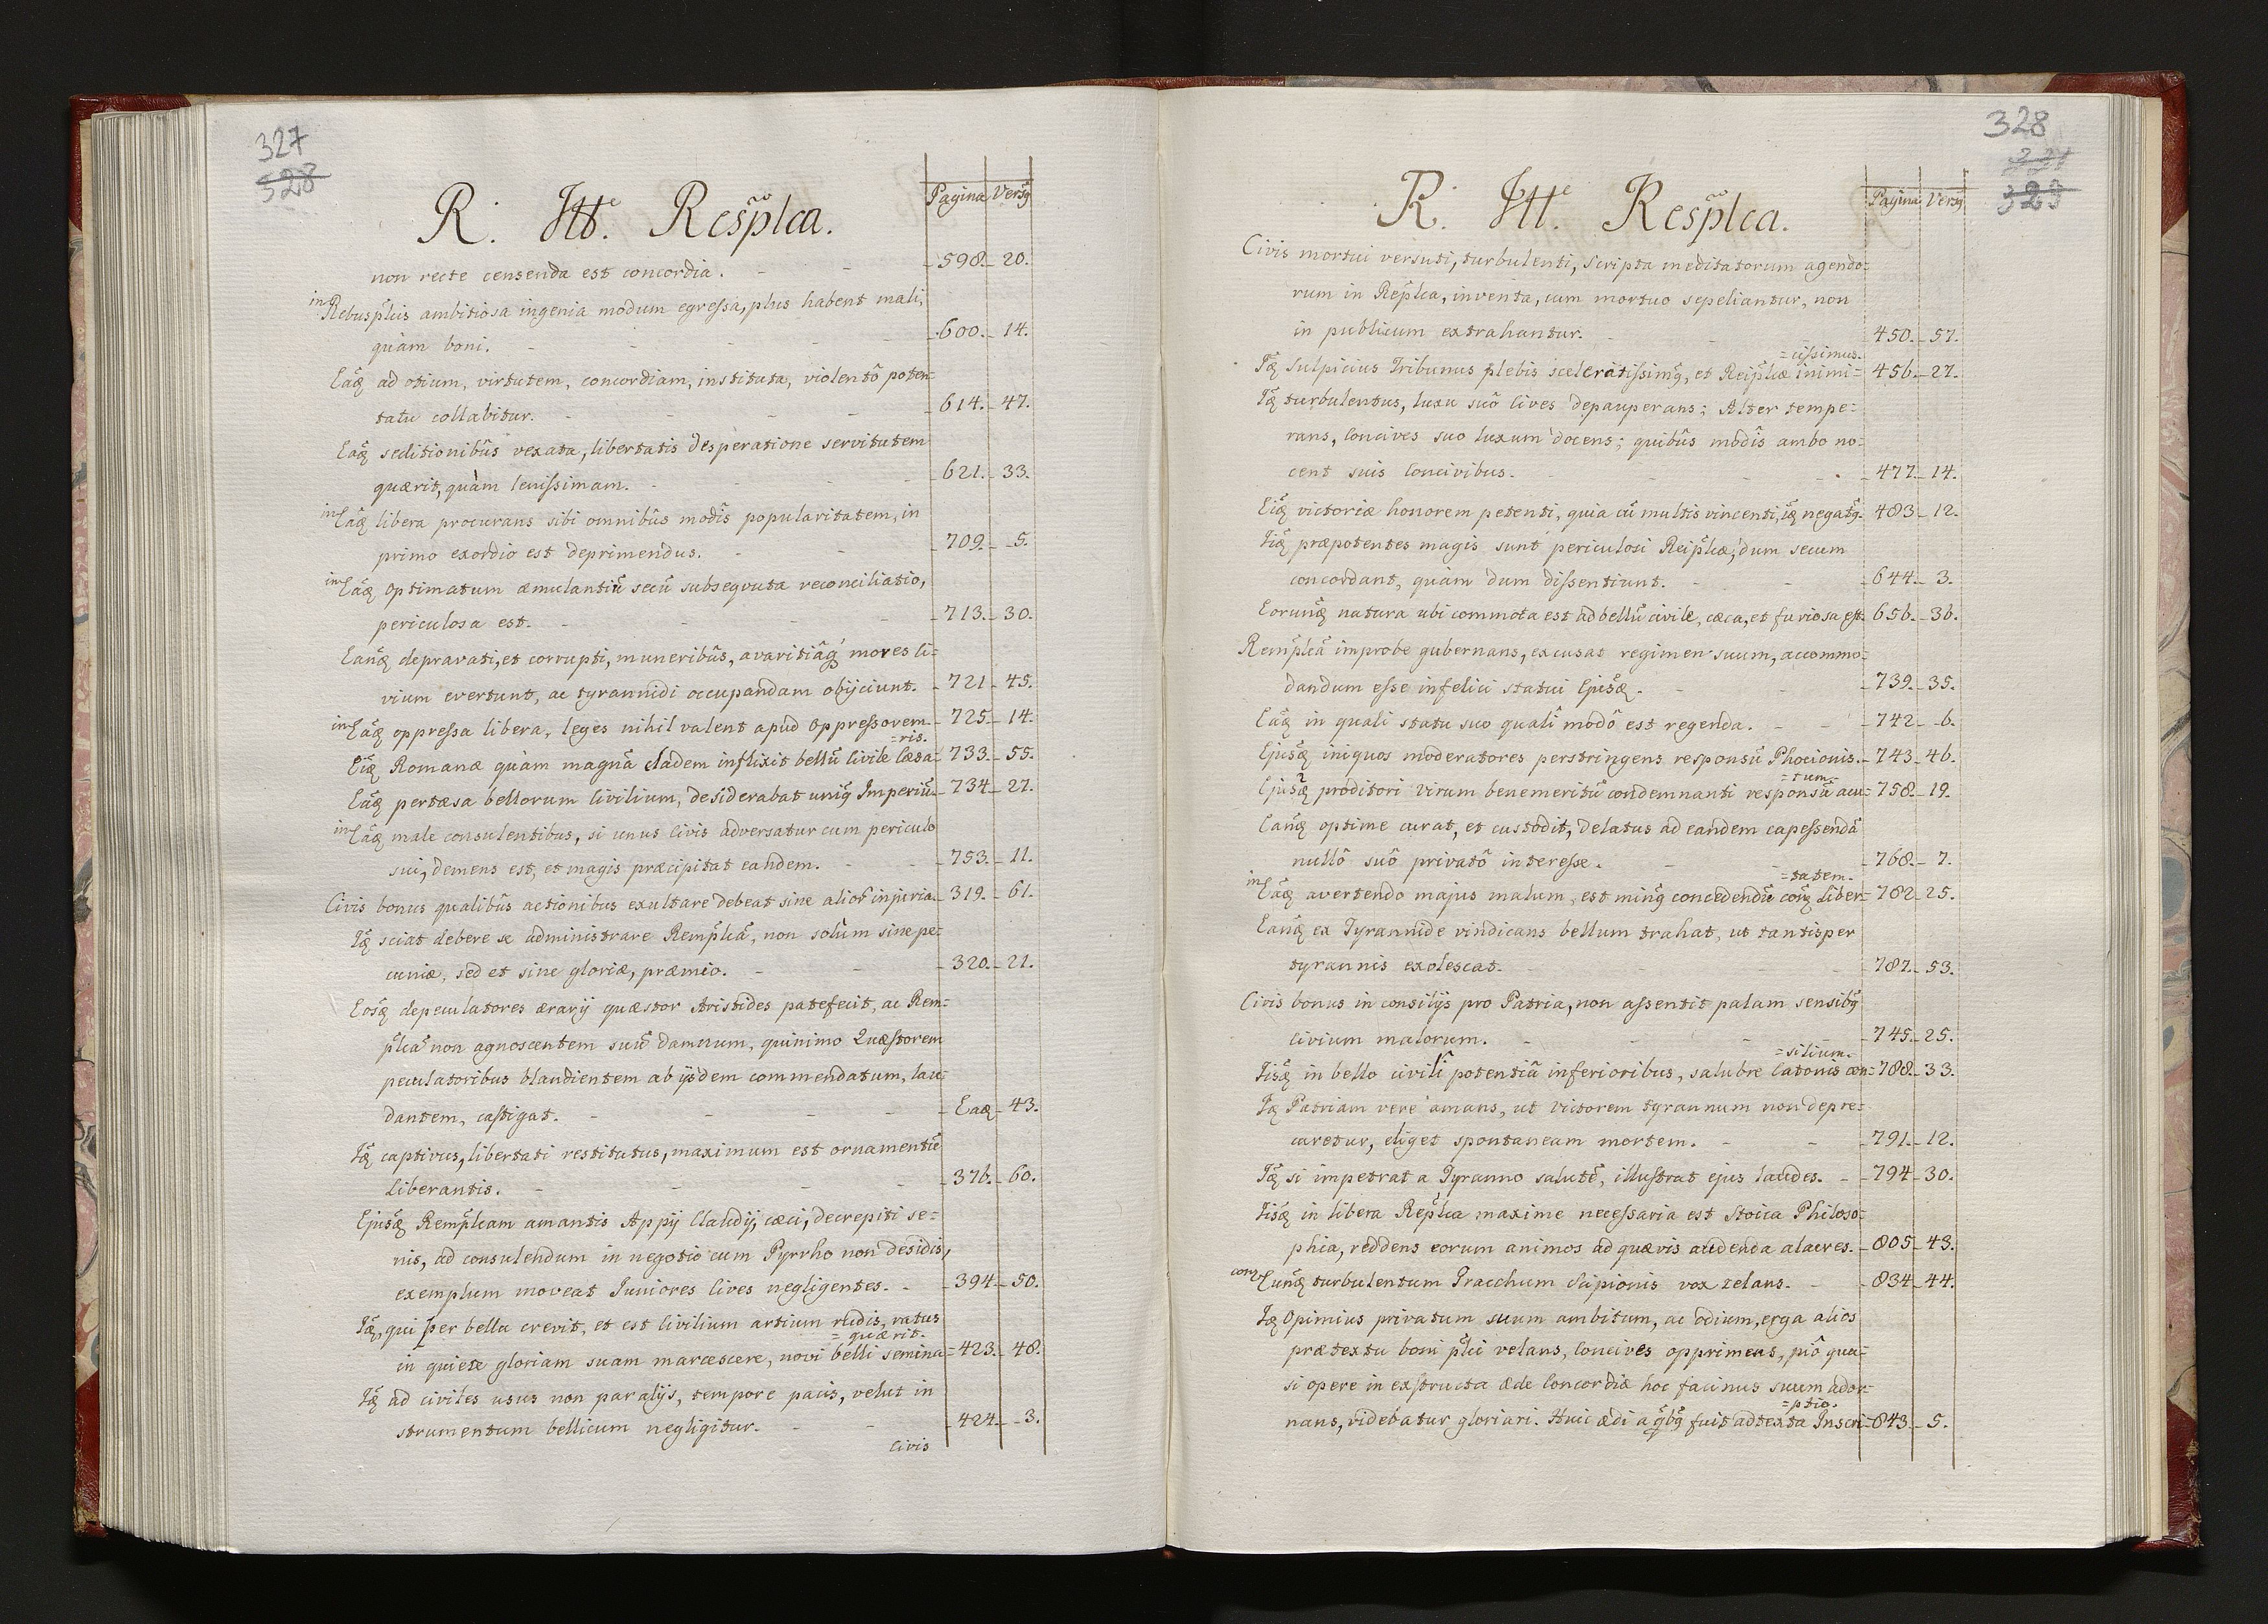 327
328
R. Itt. Resp̃lca.
Pagina Versq
non recte censenda est concordia. - 598. 20.
in Rebusp̃lcis ambitiosa ingenia modum egressa, plus habent mali,
quàm boni. - 600. 14.
Eaq̃ ad otium, virtutem, concordiam, instituta, violentô poten=
tatu collabitur. - 614. 47.
Eaq̃ seditionibûs vexata, libertatis desperatione servitutem
quærit, quàm levissimam. - 621. 33.
in Eaq̃ libera procurans sibi omnibûs modîs popularitatem, in
primo exordio est deprimendus. - 709. 5.
in Eaq̃ Optimatum æmulantiũ secũ subseqvuta reconciliatio,
periculosa est. - 713. 30.
Eanq̃ depravati, et corrupti, muneribûs, avaritiâq́ mores Ci=
vium evertunt, ac tyrannidi occupandam obijciunt. - 721 - 45.
in Eaq̃ oppressa libera, leges nihil valent apud Oppressorem - 725 - 14.
=ris.
Eiq̃ Romanæ quàm magnã cladem inflixit bellũ Civile Cæsa= 733. - 55.
Eaq̃ pertæsa bellorum Civilium, desiderabat uniq Imperiũ - 734 - 27.
in Eaq̃ male consulentibus, si unus Civis adversatur cum periculo
sui, demens est, et magis præcipitat eandem. - 753. - 11.
Civis bonus qualibûs actionibus exultare debeat sine alior̃ injuria. - 319. - 61.
Iq̃ sciat debere se administrare Remp̃lcã, non solûm sine pe=
cuniæ, sed et sine gloriæ, præmio. - 320. - 21.
Eosq̃ depeculatores ærarij quæstor Aristides patefecit, ac Rem=
p̃lcã non agnoscentem suũ damnum, quinimo Quæstorem
peculatoribus blandientem ab ijsdem commendatum, lau=
dantem, castigat. - Eaq - 43.
Iq̃ captivus, libertati restitutus, maximum est ornamentũ
liberantis. - 376. - 60.
Ejusq̃ Remp̃lcam amantis Appij Claudij, cæci, decrepiti se=
nis, ad consulendum in negotio cum Pyrrho non desidis,
exemplum moveat Juniores Cives negligentes. - 394 - 50.
Iq̃, qui per bella crevit, et est Civilium artium rudis, ratus
=quærit.
in quiete gloriam suam marcescere, novi belli semina = 423. - 48.
Iq̃ ad civiles usus non paralijs, tempore pacis, velut in
strumentum bellicum negligitur. - 424. - 3.
Civis
328
329
R. Itt. Resp̃lca.
Pagina Versq
Civis mortui versuti, turbulenti, scripta meditatorum agendo=
rum in Rep̃lca, inventa, cum mortuo sepeliantur, non
in publicum extrahantur. - 450. - 57.
=cissimus.
Iq̃ Sulpicius Tribunus plebis sceleratissimq, et Reip̃lcæ inimi= 456. - 27.
Iq̃ turbulentus, luxu suô Cives depauperans; Alter tempe=
rans, Concives suo luxum docens; quibûs modîs ambo no=
cent suis Concivibus. - 477. - 14.
Eiq̃ victoriæ honorem petenti, quia cũ multis vincenti, iq̃ negatq. 483 - 12.
Iiq̃ præpotentes magis sunt periculosi Reip̃lcæ, dum secum
concordant, quàm dum dissentiunt. - 644. - 3.
Eorunq̃ natura ubi commota est ad bellũ civile, cæca, et furiosa est. 656. - 36.
Remp̃lcã improbe gubernans, excusat regimen suum, accommo=
dandum esse infelici statui Ejusq̃. - 739. - 35.
Eaq̃ in quali statu suo qualî modô est regenda. - 742 - 6.
Ejusq̃ iniquos moderatores perstringens responsũ Phocionis. - 743 - 46.
=tum.
Ejusq̃ proditori virum benemeritũ condemnanti responsũ acu= 758. - 19.
Eanq̃ optime curat, et custodit, delatus ad eandem capessendã
nullô suô privatô interesse. - 768. - 7.
=tatem.
in Eaq̃ avertendo majus malum, est minq concedendũ conq Liber= 782 - 25.
Eanq̃ ex Tyrannide vindicans bellum trahat, ut tantisper
tyrannis exolescat. - 787. - 53.
Civis bonus in consilijs pro Patria, non assentit palam sensibq
Civium malorum. - 745. - 25.
=silium.
Iisq̃ in bello civilî potentiâ inferioribus, salubre Catonis con= 788. - 33.
Iq̃ Patriam vere amans, ut Victorem tyrannum non depre=
caretur, eliget spontaneam mortem. - 791. - 12.
Iq̃ si impetrat a Tyranno salutẽ, illustrat ejus laudes. - 794 - 30.
Iisq̃ in libera Rep̃lca maxime necessaria est Stoica Philoso=
phia, reddens eorum animos ad quævis audenda alacres. - 805 - 43.
conq Eunq̃ turbulentum Gracchum Scipionis vox zelans. - 834 - 44.
Iq̃ Opimius privatum suum ambitum, ac odium, erga alios
prætextu boni p̃lci velans, Concives opprimens, piô qua=
si opere in exstructa æde Concordiæ hoc facinus suum ador=
=ptio.
nans, videbatur gloriari. Huic ædi a q̃bq̃ fuit adtexta Inscri= 843. - 5.